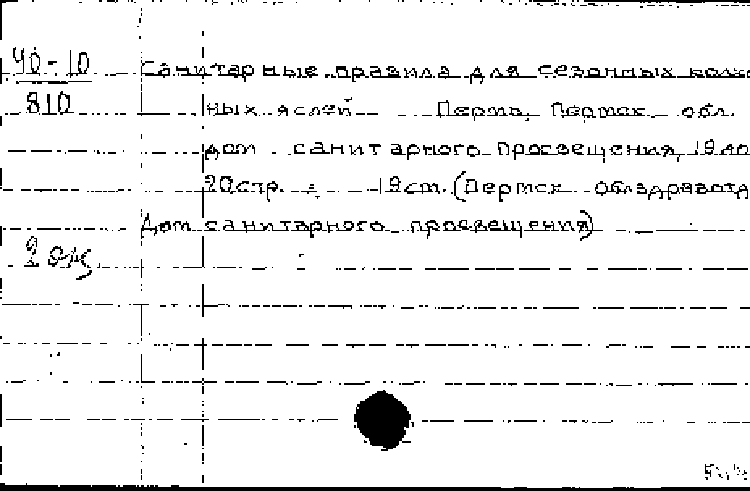 40-10
810
Санитарные правила для сезонных колхо
ных яслей Пермь, Пермск. обл.
дом санитарного просвещения, 1940
20стр. 19см. (Пермск облздравотд
Дом санитарного просвещения)
2 экз.